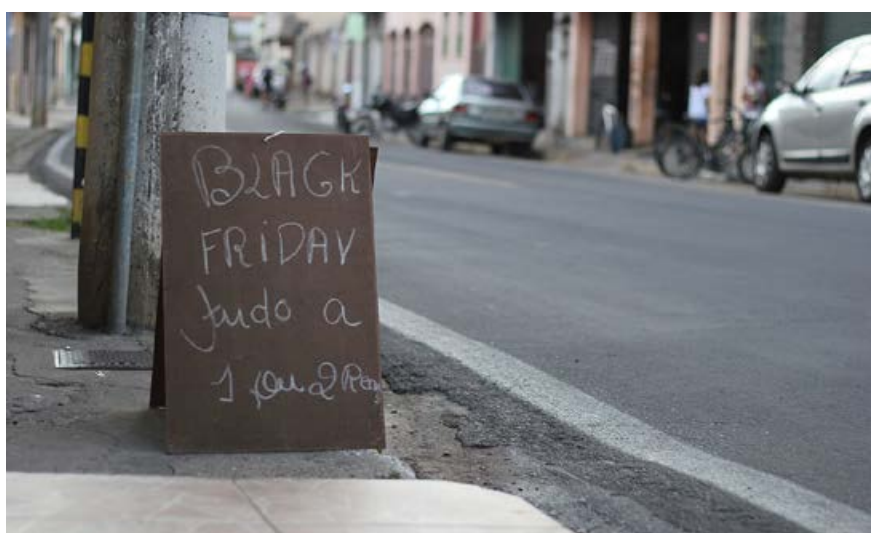 BLACK
FRiDAY
tudo a
1 ou 2 Reais